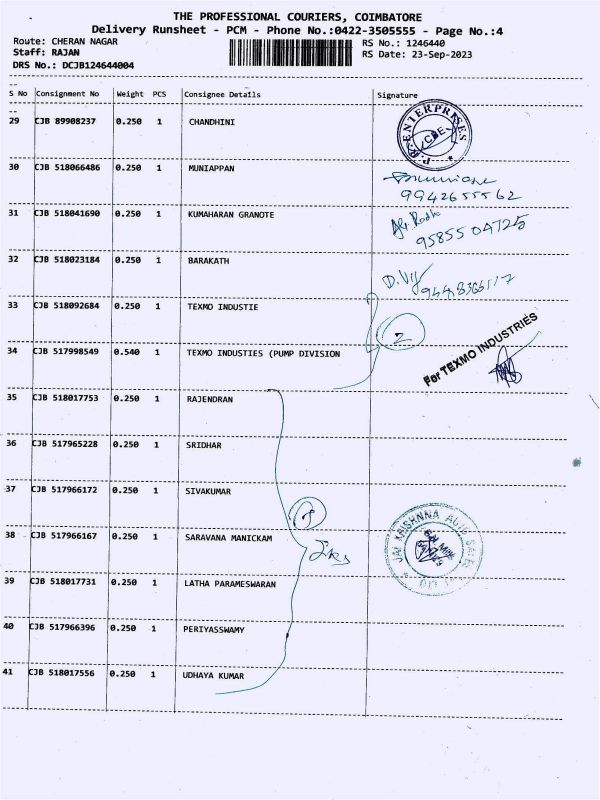 THE PROFESSIONAL COURIERS, COIMBATORE
Delivery Runsheet - PCM - Phone No.:0422-3505555 - Page No.:4
Route: CHERAN NAGAR RS No.: 1246440
Staff: RAJAN RS Date: 23-Sep-2023
DRS No.: DCJB124644004
S No Consignment No Weight PCS Consignee Details Signature
29 CJB 89908237 0.250 1 CHANDHINI
P.R. ENTERPRISES
CBE
30 CJB 518066486 0.250 1 MUNIAPPAN
9942655562
31 CJB 518041690 0.250 1 KUMAHARAN GRANOTE
9585504725
32 CJB 518023184 0.250 1 BARAKATH
33 CJB 518092684 0.250 1 TEXMO INDUSTIE
2
34 CJB 517998549 0.540 1 TEXMO INDUSTIES (PUMP DIVISION
For TEXMO INDUSTRIES
35 CJB 518017753 0.250 1 RAJENDRAN
36 CJB 517965228 0.250 1 SRIDHAR
37 CJB 517966172 0.250 1 SIVAKUMAR
38 CJB 517966167 0.250 1 SARAVANA MANICKAM
JAI KRISHNNA AUTO SALES
39 CJB 518017731 0.250 1 LATHA PARAMESWARAN
40 CJB 517966396 0.250 1 PERIYASSWAMY
41 CJB 518017556 0.250 1 UDHAYA KUMAR